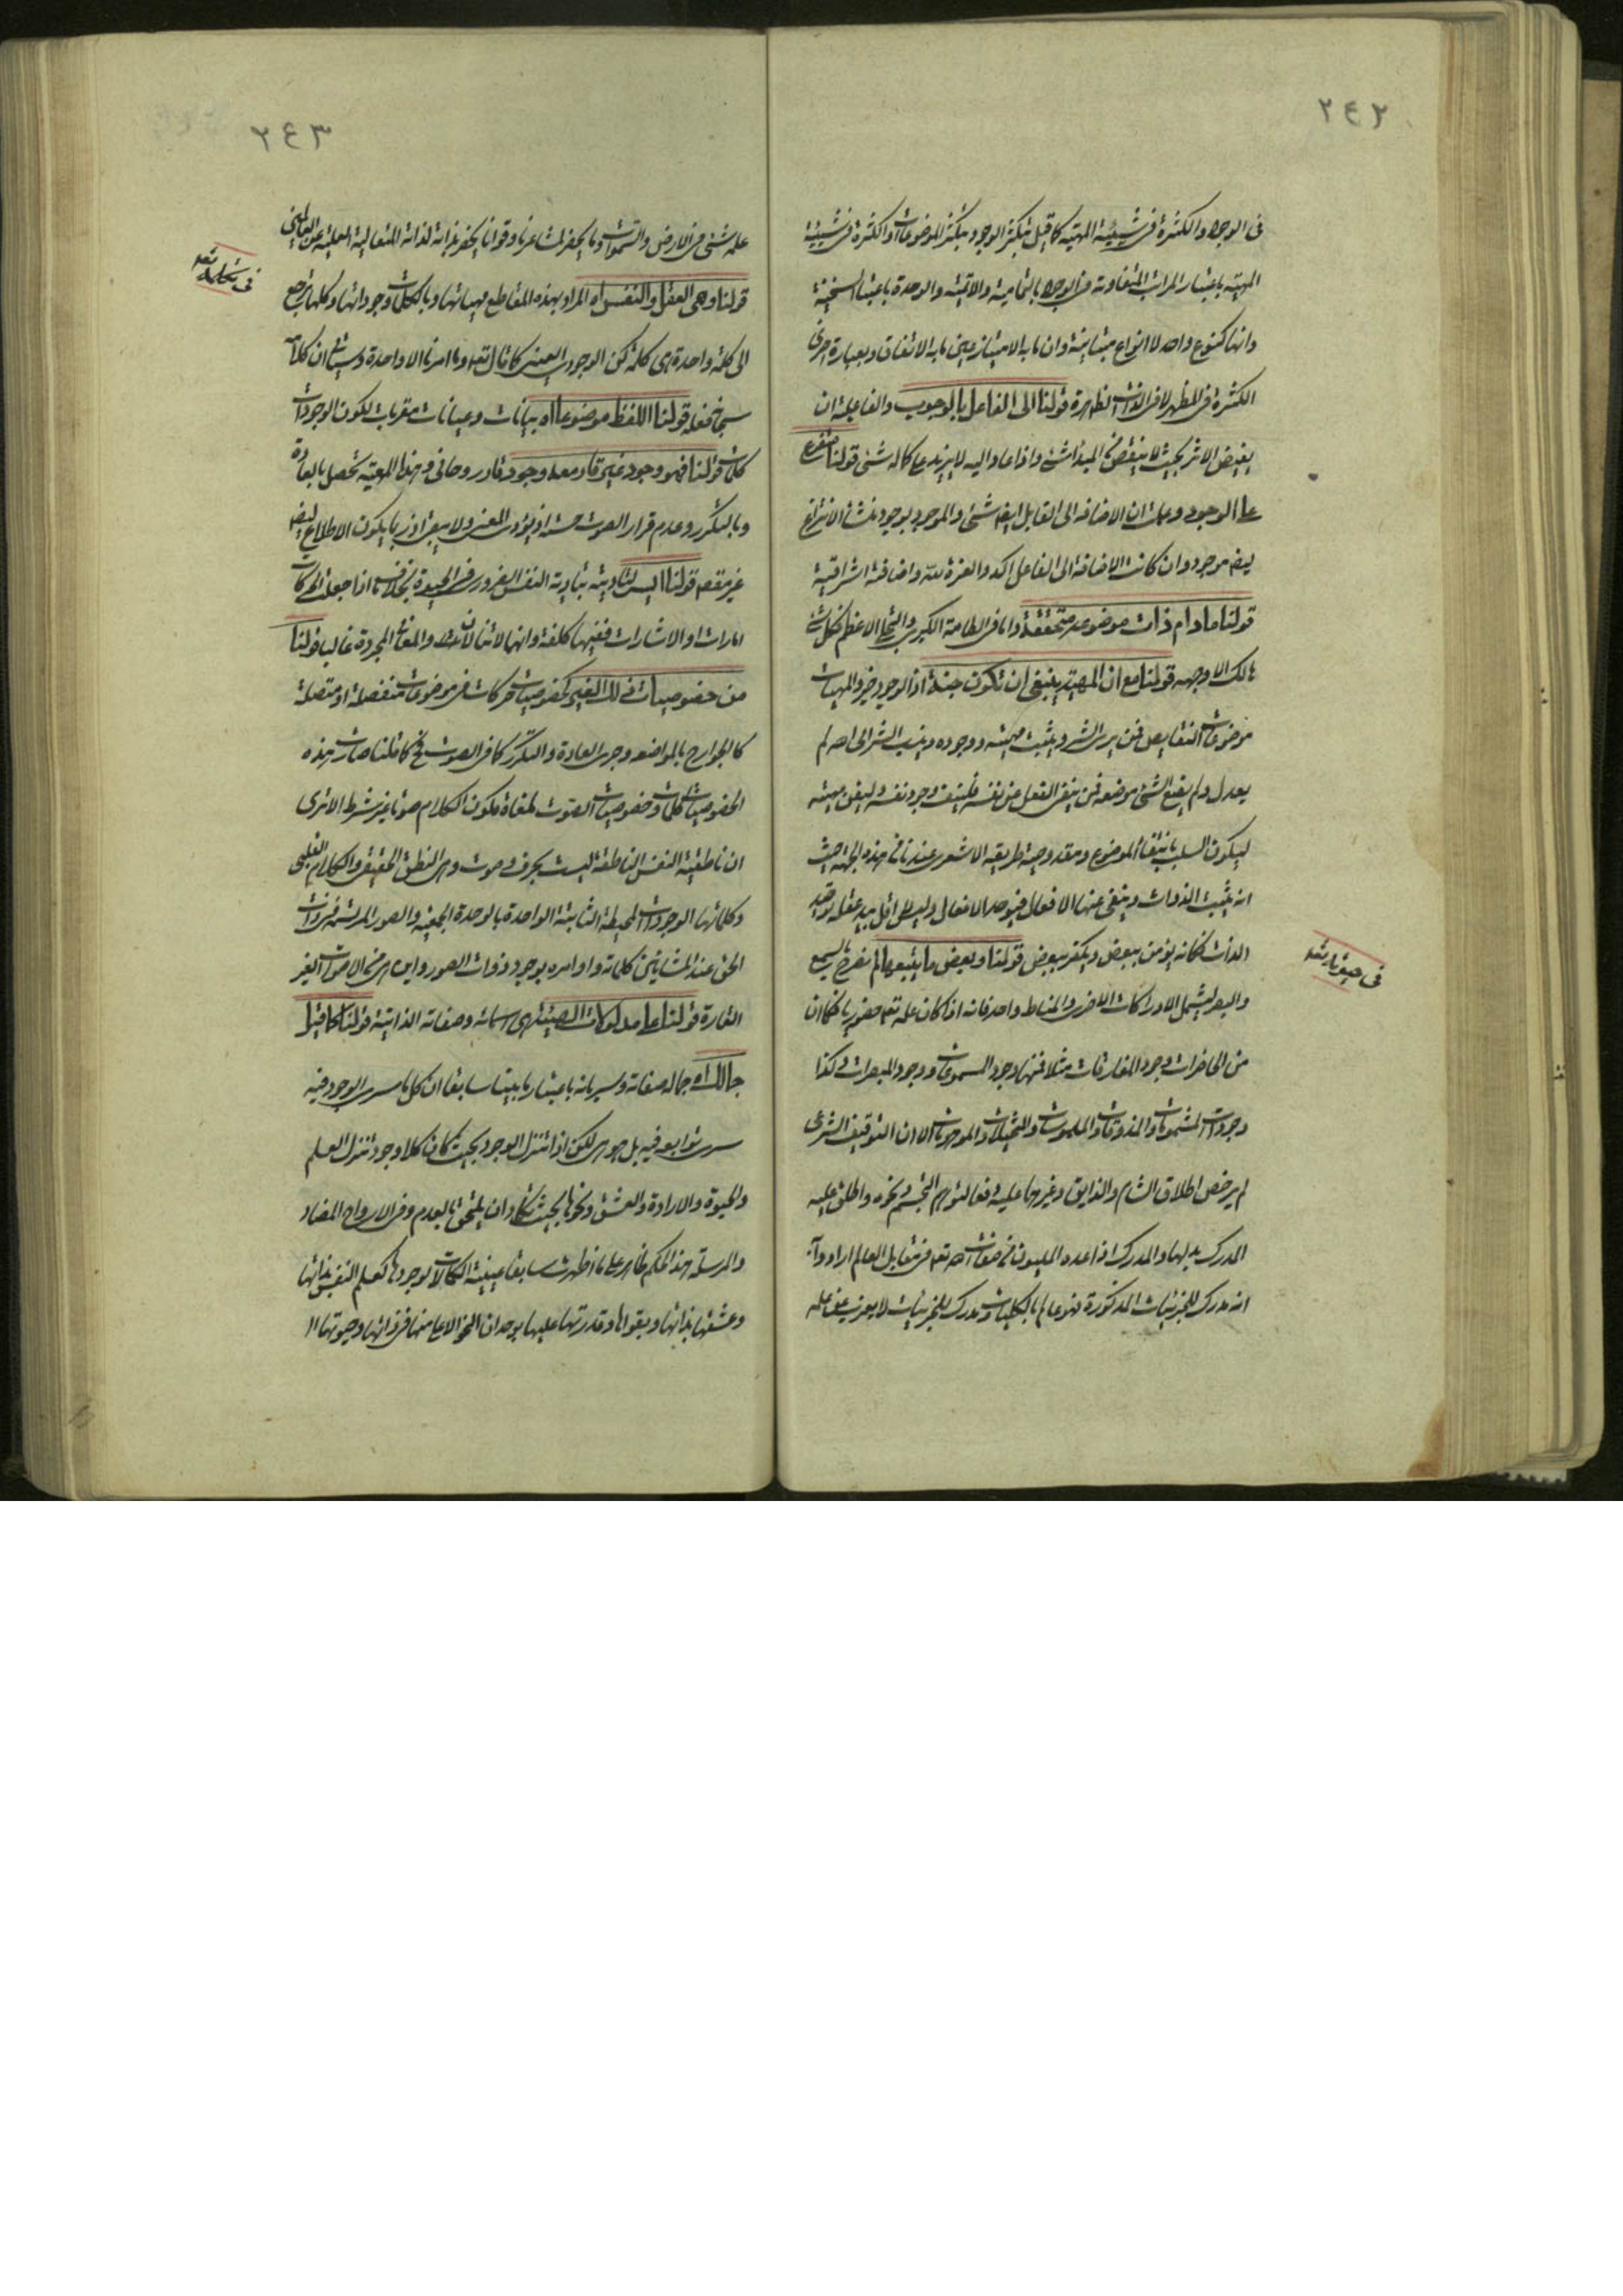 ٢٤٢
فى الوجود والكثرة فى شيئية المهية كما قيل تكثر الوجود بتكثر الموضوعات او الكثرة فى شيئية
المهية باعتبار المراتب المتفاوتة فى الوجود بالتمامية والاتمية والوحدة باعتبار السنخية
وانها كنوع واحد لا انواع متباينة وان ما به الامتياز عين ما به الاتفاق وبعبارة اخرى
الكثرة فى المظهر لا فى الذات الظاهرة قولنا الى الفاعل بالوجوب والفاعلية ان
يفيض الاثر بحيث لا ينقص من المبدا شئ واذا عاد اليه لا يزيد على كماله شئ قولنا متفرع
على الوجود وعلمت ان الاضافة الى القابل ايضا شئ والموجود بوجود منشأ الانتزاع
ايضا موجود وان كانت الاضافة الى الفاعل اكد والعزة لله واضافته اشراقية
قولنا مادام ذات موضوعه متحققة واما فى الطامة الكبرى والتجلى الاعظم فكل شئ
هالك الا وجهه قولنا مع ان المهية ينبغى ان تكون جنة اذ الوجود خير والمهيات
موضوعات النقايص فمن يرى الشر ويثبت مهيته ووجوده وينسب الشر الى اصله لم
يعدل ولم يضع الشئ موضعه فمن ينفى الفعل عن نفسه فلينف وجود نفسه ولينف مهيته
ليكون السلب بانتفاء الموضوع ومقدوحية طريقة الاشعرى عندنا من هذه الجهة حيث
انه يثبت الذوات وينفى عنها الافعال فيوحد الافعال وليس له اقل بيد عقله توحيد
الذات فكانه يؤمن ببعض ويكفر ببعض قولنا وبعض ما يتبعهما لم نصرح بالسميع
والبصير ليشمل الادراكات الاخرى والمناط واحد فانه اذا كان علمه تعه حضوريا فكما ان
من الحاضرات وجود المفارقات مثلا فمنها وجود المسموعات ووجود المبصرات وكذا
وجودات المشمومات والمذوقات والملموسات والمتخيلات والموهومات الا ان التوقيف الشرعى
لم يرخص اطلاق الشام والذايق وغيرهما عليه دفعا لتوهم التجسم ونحوه واطلق عليه
المدرك بدلها والمدرك اذا عده المليون من صفات الله تعه فى مقابل العالم ارادوا به
انه مدرك للجزئيات المذكورة فهو عالم بالكليات ومدرك للجزئيات لا يعزب عن علمه
فى حيوته تعه
٢٤٣
علم شئ فى الارض والسموات وما يحضر لمشاعرنا وقوانا يحضر بذاته لذاته المتعالية العلية عن العالمين
قولنا وهى العقل والنفس اه المراد بهذه المقاطع مهياتها وبالكلمات وجوداتها وكلها يرجع
الى كلمة واحدة هى كلمة كن الوجودى العينى كما قال تعه وما امرنا الا واحدة وسيأتى ان كلامه
سبحانه فعله قولنا اللفظ موضوعا اه بيانات وعيانات مقربات لكون الوجودات
كلمات قولنا فهو وجود غير قار معه وجود قار روحانى وهذا المعية تحصل بالعادة
وبالتكرر وعدم قرار الصوت حسنه اذ يؤدى المعنى ولا يبقى اذ ربما يكون الاطلاع لبعض
غير مقصد قولنا اليس لتاديته بتادية النفس الضرورى فى الحيوة بخلاف ما اذا جعلت الحركات
امارات او الاشارات ففيها كلفة وانها لا تنال الذات والمعانى المجردة غالبا قولنا
من خصوصيات ذلك الغير كخصوصيات حركات فى موضوعات منفصلة او متصلة
كالجوارح بالمواضعة وجرى العادة والتكرر كما فى الصوت فح كما قلنا صارت هذه
الخصوصيات كلمات وخصوصيات الصوت ملغاة فكون الكلام صوتا غير شرط الا ترى
ان ناطقية النفس الناطقة ليست بحرف وصوت وهى النطق الحقيقى والكلام القلبى
وكلماتها الوجودات المحيطة الثابتة الواحدة بالوحدة الجمعية والصور المرتسمة فى ذات
الحق عند المشائين كلماته واوامره بوجود ذوات الصور واين هى من الاصوات الغير
القارة قولنا على مدلولات الصفتى هى اسمائه وصفاته الذاتية قولنا كلما فيها
جمالك اه جماله صفاته وسريانه باعتبار ما بينا سابقا ان كل ما سرى الوجود فيه
سرى توابعه فيه بل هو هى لكن اذا تنزل الوجود بحيث كان كلا وجود تنزل العلم
والحيوة والارادة والعشق ونحوها بحيث تكاد ان يلتحق بالعدم وفى الارواح المضافة
والمرسلة هذا الحكم ظاهر على ما اظهرت سابقا عينية الكمالات لوجودها كعلم النفس بذاتها
وعشقها بذاتها وبقواها وقدرتها عليها بوحدان النحو الاعلى منها فى ذاتها وحيوتها
فى تكلمه تعه